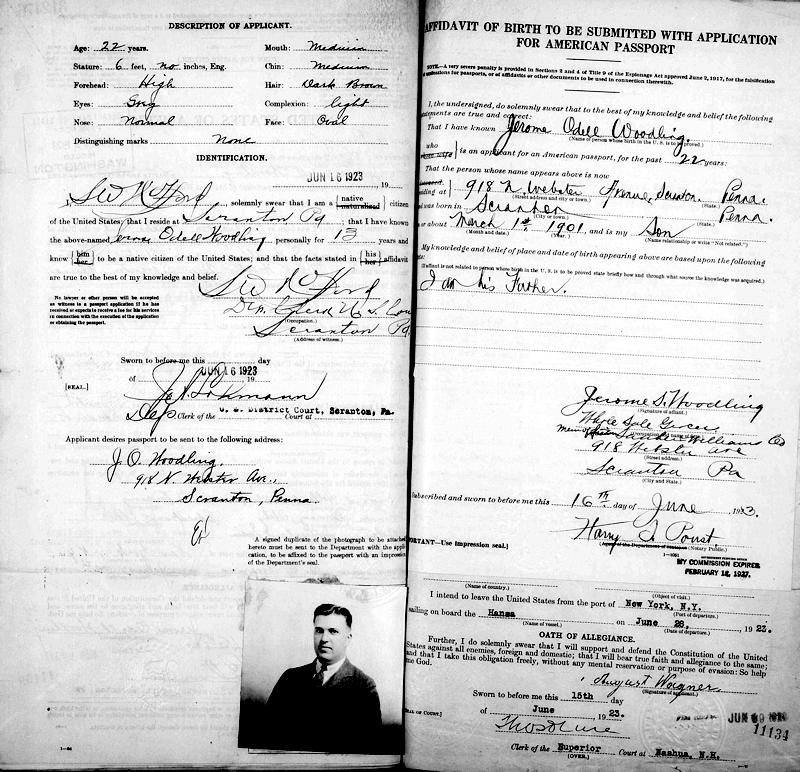 DESCRIPTION OF APPLICANT.
Age: 22 years.
Mouth: Medium
Stature: 6 feet, no inches, Eng.
Chin: Medium
Forehead: High
Hair: Dark Brown
Eyes: Grey
Complexion: light
Nose: Normal
Face: Oval
Distinguishing marks None
IDENTIFICATION.
JUN 16 1923, 19
I, solemnly swear that I am a native naturalized citizen
of the United States; that I reside at Scranton Pa; that I have known
the above-named Jerome Odell Woodling personally for 13 years and
know him her to be a native citizen of the United States; and that the facts stated in his her affidavit
are true to the best of my knowledge and belief.
No lawyer or other person will be accepted
as witness to a passport application if he has
received or expects to receive a fee for his services
in connection with the execution of the application
or obtaining the passport.
(Occupation.)
Scranton Pa
(Address of witness.)
Sworn to before me this day
JUN 16 1923
of 19
[SEAL.]
Dep Clerk of the U. S. District Court, Scranton, Pa.
Court at
Applicant desires passport to be sent to the following address:
J. O. Woodling
918 N Webster Av.,
Scranton, Penna.
A signed duplicate of the photograph to be attached
hereto must be sent to the Department with the appli
cation, to be affixed to the passport with an impression
of the Department's seal.
AFFIDAVIT OF BIRTH TO BE SUBMITTED WITH APPLICATION
FOR AMERICAN PASSPORT
NOTE.—A very severe penalty is provided in Sections 2 and 4 of Title 9 of the Espionage Act approved June 2, 1917, for the falsification
of applications for passports, or of affidavits or other documents to be used in connection therewith.
I, the undersigned, do solemnly swear that to the best of my knowledge and belief the following
statements are true and correct:
That I have known Jerome Odell Woodling
(Name of person whose birth in the U. S. is to be proved.)
who is an applicant for an American passport, for the past 22 years:
That the person whose name appears above is now
residing at 918 N. Webster Avenue, Scranton. Penna.
(Street address and city or town.) (State.)
and was born in Scranton Penna.
(City or town.) (State.)
on or about March 1st, 1901, and is my Son
(Month and date.) (Year.) (Name relationship or write "Not related.")
My knowledge and belief of place and date of birth appearing above are based upon the following
(If affiant is not related to person whose birth in the U. S. is to be proved state briefly how and through what source the knowledge was acquired.)
I am his Father.
Jerome S. Woodling
(Signature of affiant.)
Whole Sale Grocer
918 Webster Ave
(Street address.)
Scranton Pa
(City and State.)
Subscribed and sworn to before me this 16th day of June, 1923.
Harry
(Notary Public.)
IMPORTANT—Use impression seal.)
MY COMMISSION EXPIRES
FEBRUARY 18, 1927.
(Name of country.) (Object of visit.)
I intend to leave the United States from the port of New York, N.Y.
(Port of departure.)
sailing on board the Hansa on June 28, 1923.
(Name of vessel.) (Date of departure.)
OATH OF ALLEGIANCE.
Further, I do solemnly swear that I will support and defend the Constitution of the United
States against all enemies, foreign and domestic; that I will bear true faith and allegiance to the same;
and that I take this obligation freely, without any mental reservation or purpose of evasion: So help
me God.
August Wagner
(Signature of applicant.)
Sworn to before me this 15th day
of June, 1923.
[SEAL OF COURT.]
11134
Clerk of the Superior Court at Nashua, N.H.
(OVER.)